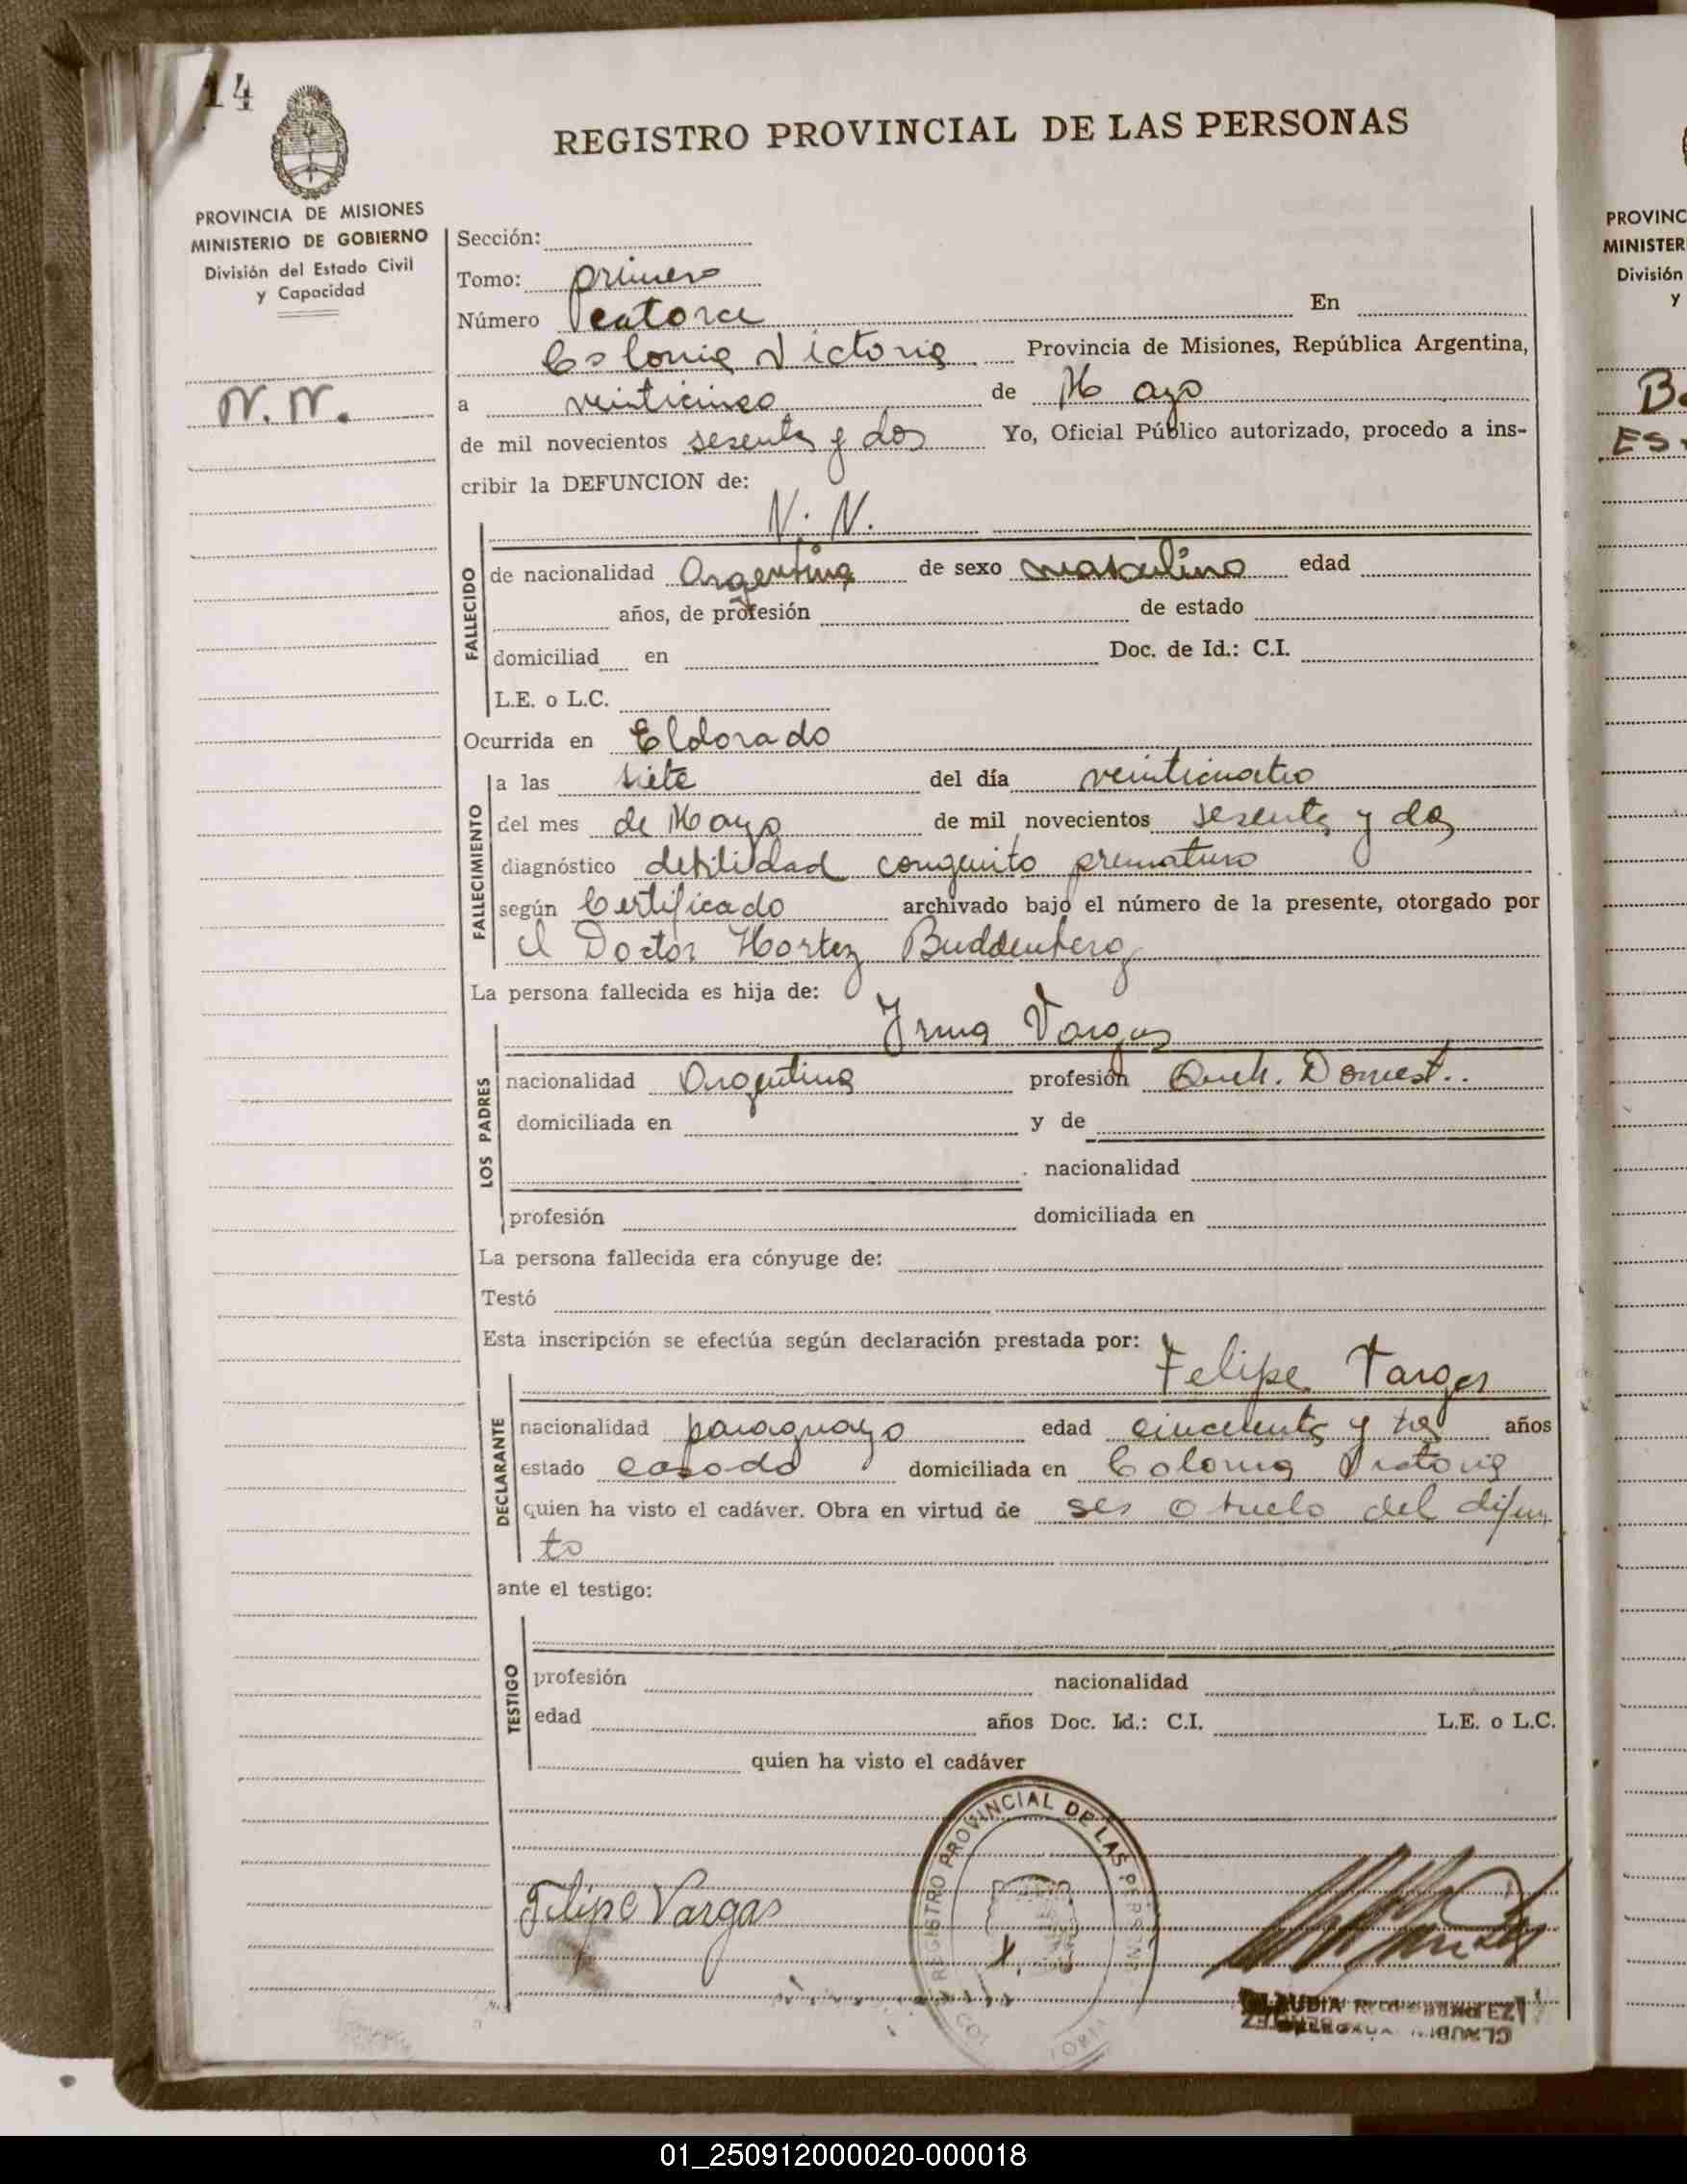 14
REGISTRO PROVINCIAL DE LAS PERSONAS
PROVINCIA DE MISIONES
MINISTERIO DE GOBIERNO
División del Estado Civil
y Capacidad
N. N.
Sección:
Tomo: primero
Número catorce En
Colonia Victoria Provincia de Misiones, República Argentina,
a veinticinco de Mayo
de mil novecientos sesenta y dos Yo, Oficial Público autorizado, procedo a ins-
cribir la DEFUNCION de:
N. N.
FALLECIDO
de nacionalidad Argentina de sexo masculino edad
años, de profesión de estado
domiciliad en Doc. de Id.: C.I.
L.E. o L.C.
Ocurrida en Eldorado
FALLECIMIENTO
a las siete del día veinticuatro
del mes de Mayo de mil novecientos sesenta y dos
diagnóstico debilidad congenito prematuro
según Certificado archivado bajo el número de la presente, otorgado por
el Doctor Buddenberg
La persona fallecida es hija de:
LOS PADRES
Irma Vargas
nacionalidad Argentina profesión Domest..
domiciliada en y de
nacionalidad
profesión domiciliada en
La persona fallecida era cónyuge de:
Testó
Esta inscripción se efectúa según declaración prestada por:
DECLARANTE
Felipe Vargas
nacionalidad paraguayo edad cincuenta y tres años
estado casado domiciliada en Colonia Victoria
quien ha visto el cadáver. Obra en virtud de ser abuelo del difun
to
ante el testigo:
TESTIGO
profesión nacionalidad
edad años Doc. Id.: C.I. L.E. o L.C.
quien ha visto el cadáver
REGISTRO PROVINCIAL DE LAS PERSONAS
Felipe Vargas
PROVINC
MINISTER
División
y
01_250912000020-000018